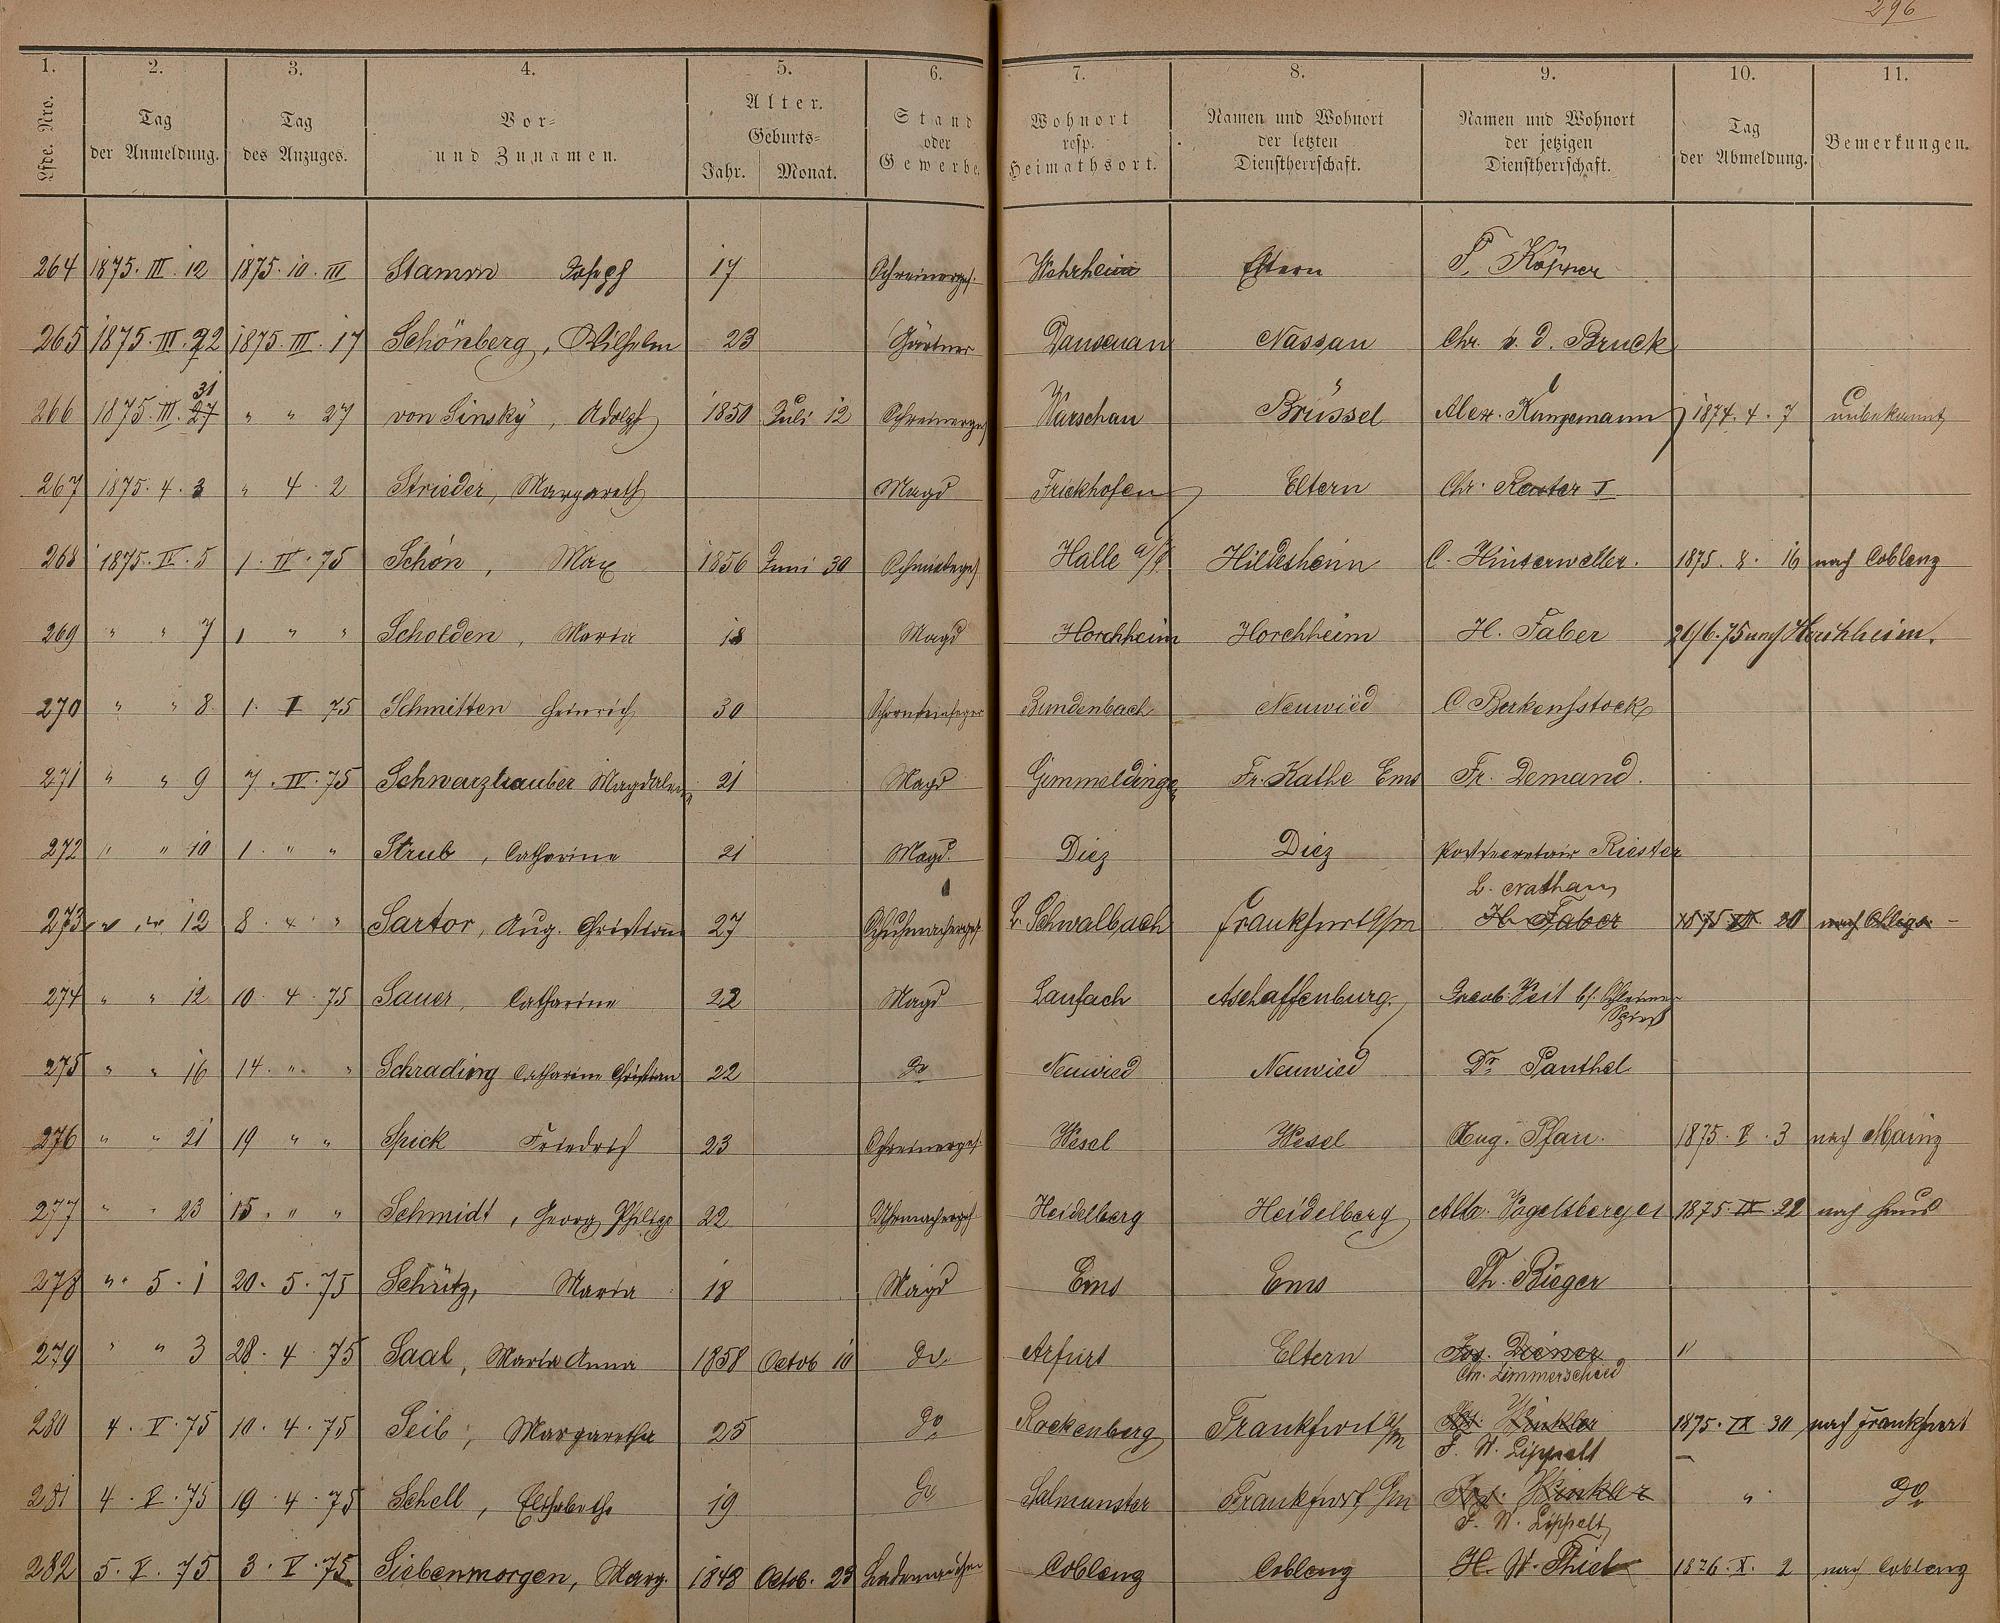 296
1. 2. 3. 4. 5. 6. 7. 8. 9. 10. 11.
Lfde. Nro. Tag der Anmeldung. Tag des Anzuges. Vor- und Zunamen. Alter. Geburts- Jahr. Monat. Stand oder Gewerbe. Wohnort resp. Heimathsort. Namen und Wohnort der letzten Dienstherrschaft. Namen und Wohnort der jetzigen Dienstherrschaft. Tag der Abmeldung. Bemerkungen.
264 1875. III. 12 1875. 10. III Stamm Joseph 17 Schreinerges. Wehrheim Eltern
265 1875. III. 22 1875. III. 17 Schönberg, Wilhelm 23 Gärtner Dausenau Nassau Chr. v. d. Bruck
266 1875. III. 27 31 " " 27 von Sinsky, Adolph 1850 Juli 12 Schreinerges Warschau Brüssel Alex. Kungemann 1874. 4. 7 unbekannt
267 1875. 4. 3 " 4. 2 Strieder, Margareth Magd Frickhofen Eltern Chr. Reuter I
268 1875. IV. 5 1. IV. 75 Schön, Max 1856 Juni 30 Halle a/S Hildesheim C. Hinterweller. 1875. 8. 16 nach Coblenz
269 " " 7 1 " " Scholden, Maria 18 Magd Horchheim Horchheim H. Faber 21/6. 75 nach Horchheim.
270 " " 8 1. I 75 Schmitten Heinrich 30 Schornsteinfeger Bundenbach Neuwied C Berkenstock
271 " " 9 7. IV. 75 Schwarztrauber Magdalena 21 Magd Gimmeldingen Fr. Kathe Ems Fr. Demand.
272 " " 10 1. " " Strub, Catharine 21 Magd. Diez Diez Postsecretair Riester
273 " " 12 8. " " Sartor, Aug. Christian 27 Schuhmacherges. L. Schwalbach Frankfurt a/m L. Nathan H. Faber 1875 20
274 " " 12 10. 4. 75 Sauer, Catharine 22 Magd Laufach Aschaffenburg. Jacob Veit bei Schreiner Spieß
275 " " 16 14. " " Schrading Catharine Christian 22 do Neuwied Neuwied Dr. Panthel
276 " " 21 19 " " Spick Friedrich 23 Schreinerges. Wesel Wesel Aug. Pfau. 1875. V. 3 nach Mainz
277 " " 23 15. " " Schmidt, Georg Philipp 22 Uhrmacherges Heidelberg Heidelberg Alb. Vogelsberger 1875. IX. 22 nach Haus
278 " 5. 1 20. 5. 75 Schütz, Maria 18 Magd Ems Ems Th. Bieger
279 " " 3 28. 4. 75 Saal, Maria Anna 1858 Octob 10 do. Arfurt Eltern Jos. Diener Chr. Zimmerscheid "
280 4. V. 75 10. 4. 75 Seib, Margaretha 25 do Rockenberg Frankfurt a/m Jos. Winkler F. W. Lippelt 1875. IX. 30 nach Frankfurt
281 4. V. 75 19. 4. 75 Schell, Elisabetha 19 do Salmunster Frankfurt a/m Jos. Winkler F. W. Lippelt " do
282 5. V. 75 3. V. 75 Siebenmorgen, Marg. 1848 Octob. 23 Coblenz Coblenz H. W. Thiel 1876. X. 2 nach Coblenz